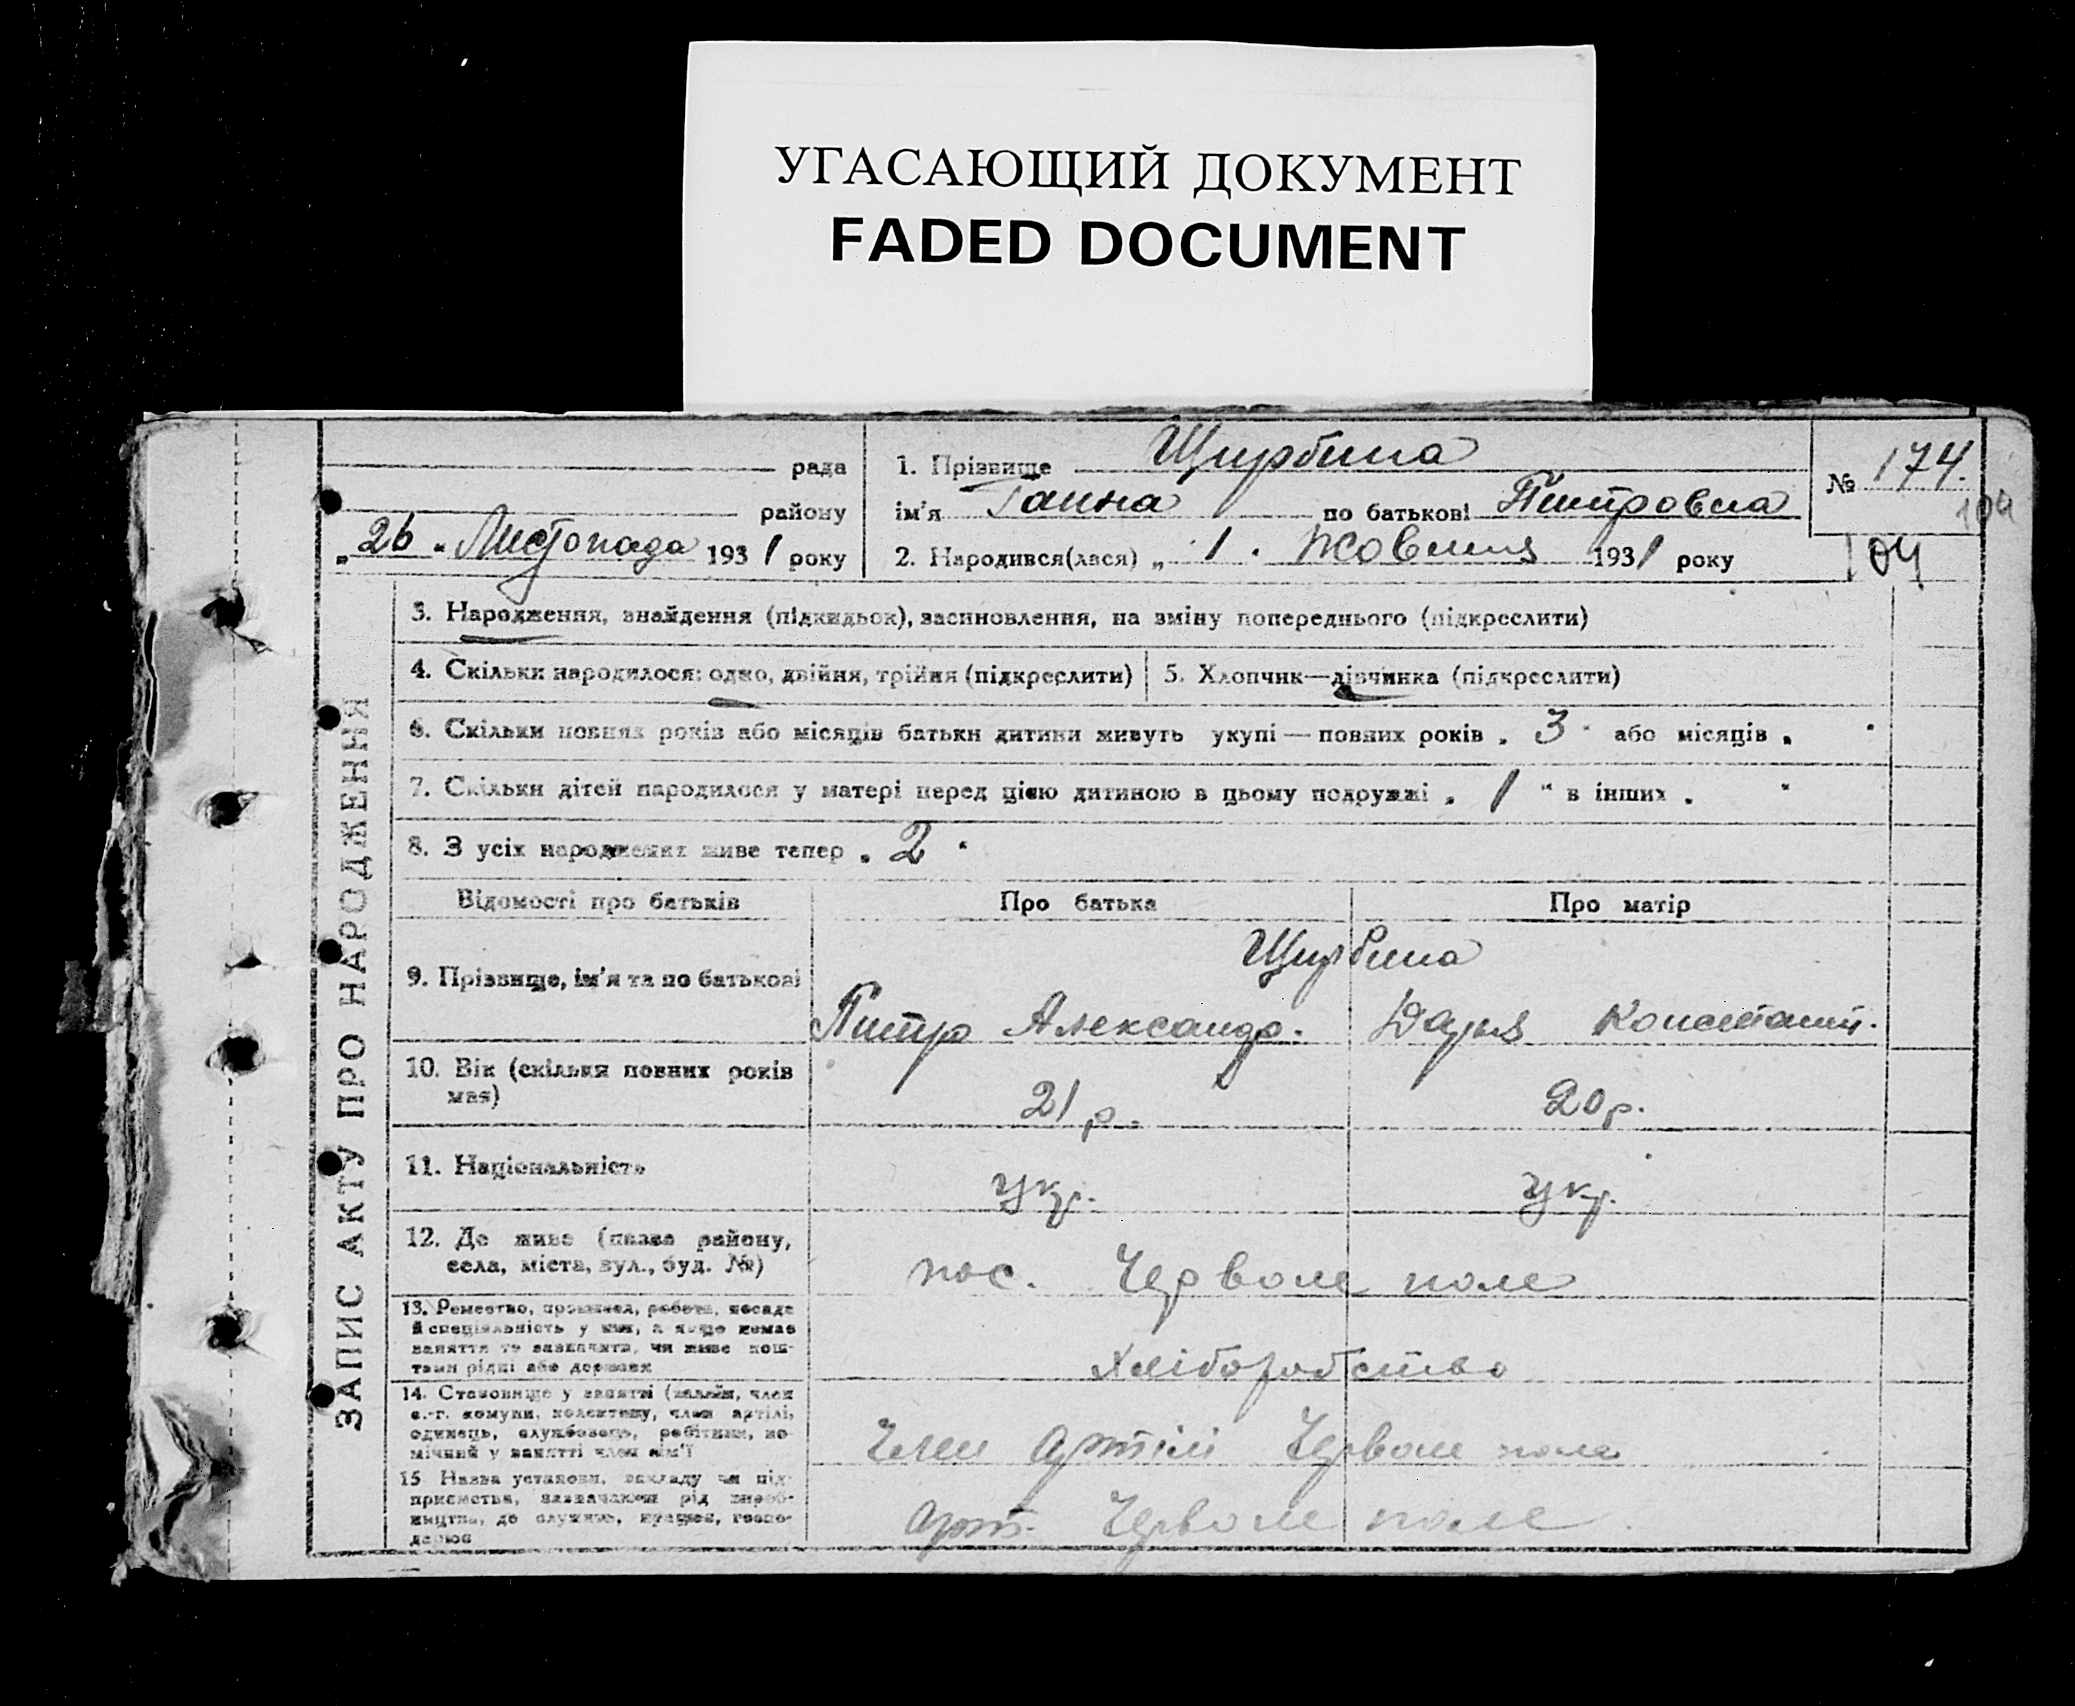 УГАСАЮЩИЙ ДОКУМЕНТ
FADED DOCUMENT
рада
району
„26 " Листопада 1931 року
1. Прізвище Щирбина
ім'я Ганна по батькові Питровна
2. Народився(лася) „ 1 " Жовтня 1931 року
№ 174.
104
104
ЗАПИС АКТУ ПРО НАРОДЖЕННЯ
3. Народження, знайдення (підкидьок), засиновлення, на зміну попереднього (підкреслити)
4. Скільки народилося: одно, двійня, трійня (підкреслити) 5. Хлопчик—дівчинка (підкреслити)
6. Скільки повних років або місяців батьки дитини живуть укупі — повних років „ 3 " або місяців „ "
7. Скільки дітей народилося у матері перед цією дитиною в цьому подружжі „ 1 " в інших „ "
8. З усіх народжених живе тепер „ 2 "
Відомості про батьків Про батька Про матір
9. Прізвище, ім'я та по батькові Щирбина
Питро Александр. Дарья Констант.
10. Вік (скільки повних років
має) 21 р. 20 р.
11. Національність укр. укр.
12. Де живе (назва району,
села, міста, вул., буд. №) пос. Червоне поле
13. Ремество, промисел, робота, посада
й спеціяльність у них, а якщо немає
заняття то зазначити, чи живе кош-
тами рідні або держави
Хліборобство
14. Становище у занятті (хазяїн, член
с.-г. комуни, колективу, член артілі,
одинець, службовець, робітник, по-
мічний у занятті член сім'ї
Член артілі Червоне поле
15 Назва установи, закладу чи під-
приємства, зазначаючи рід вироб-
ництва, де служить, працює, госпо-
дарює
арт. Червоне поле